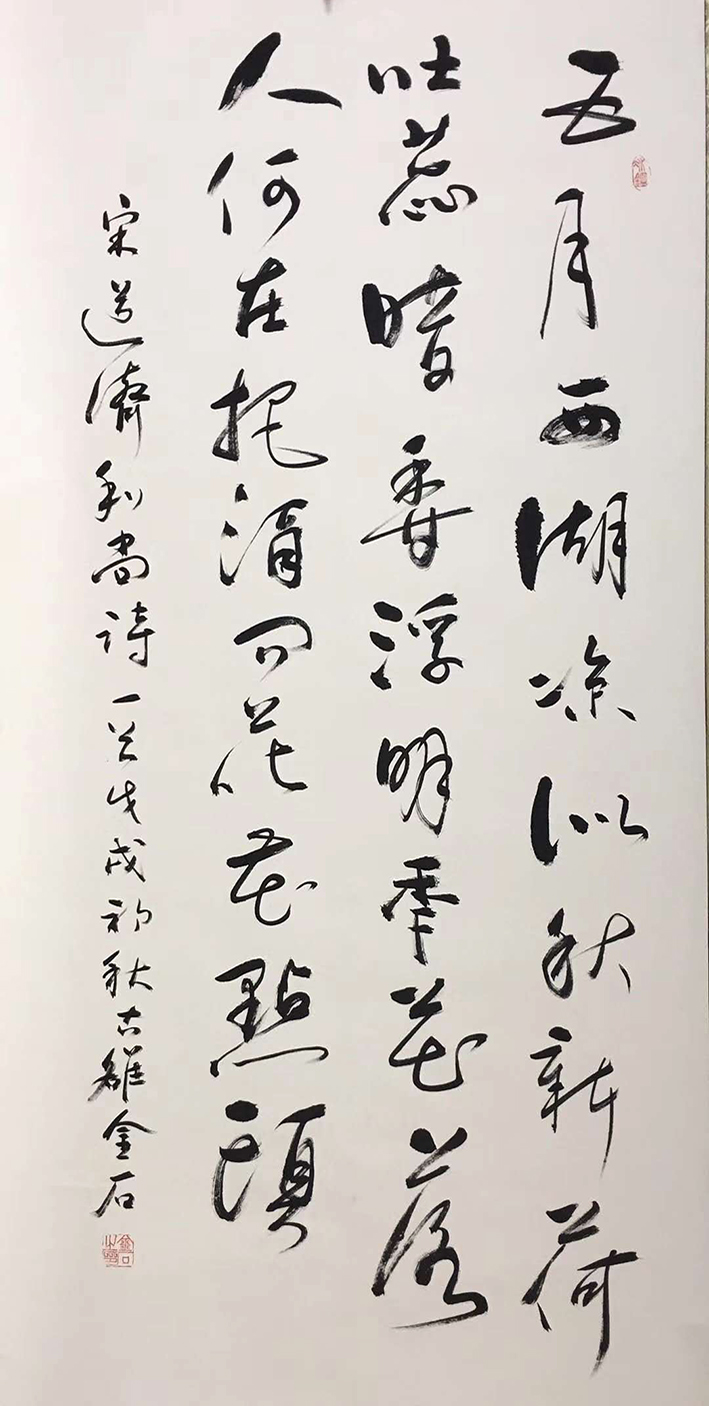 五月西湖凉似秋新荷
吐蕊暗香浮明年花落
人何在把酒问花花點頭
宋道濟和尚詩一首戊戌初秋古雒金石